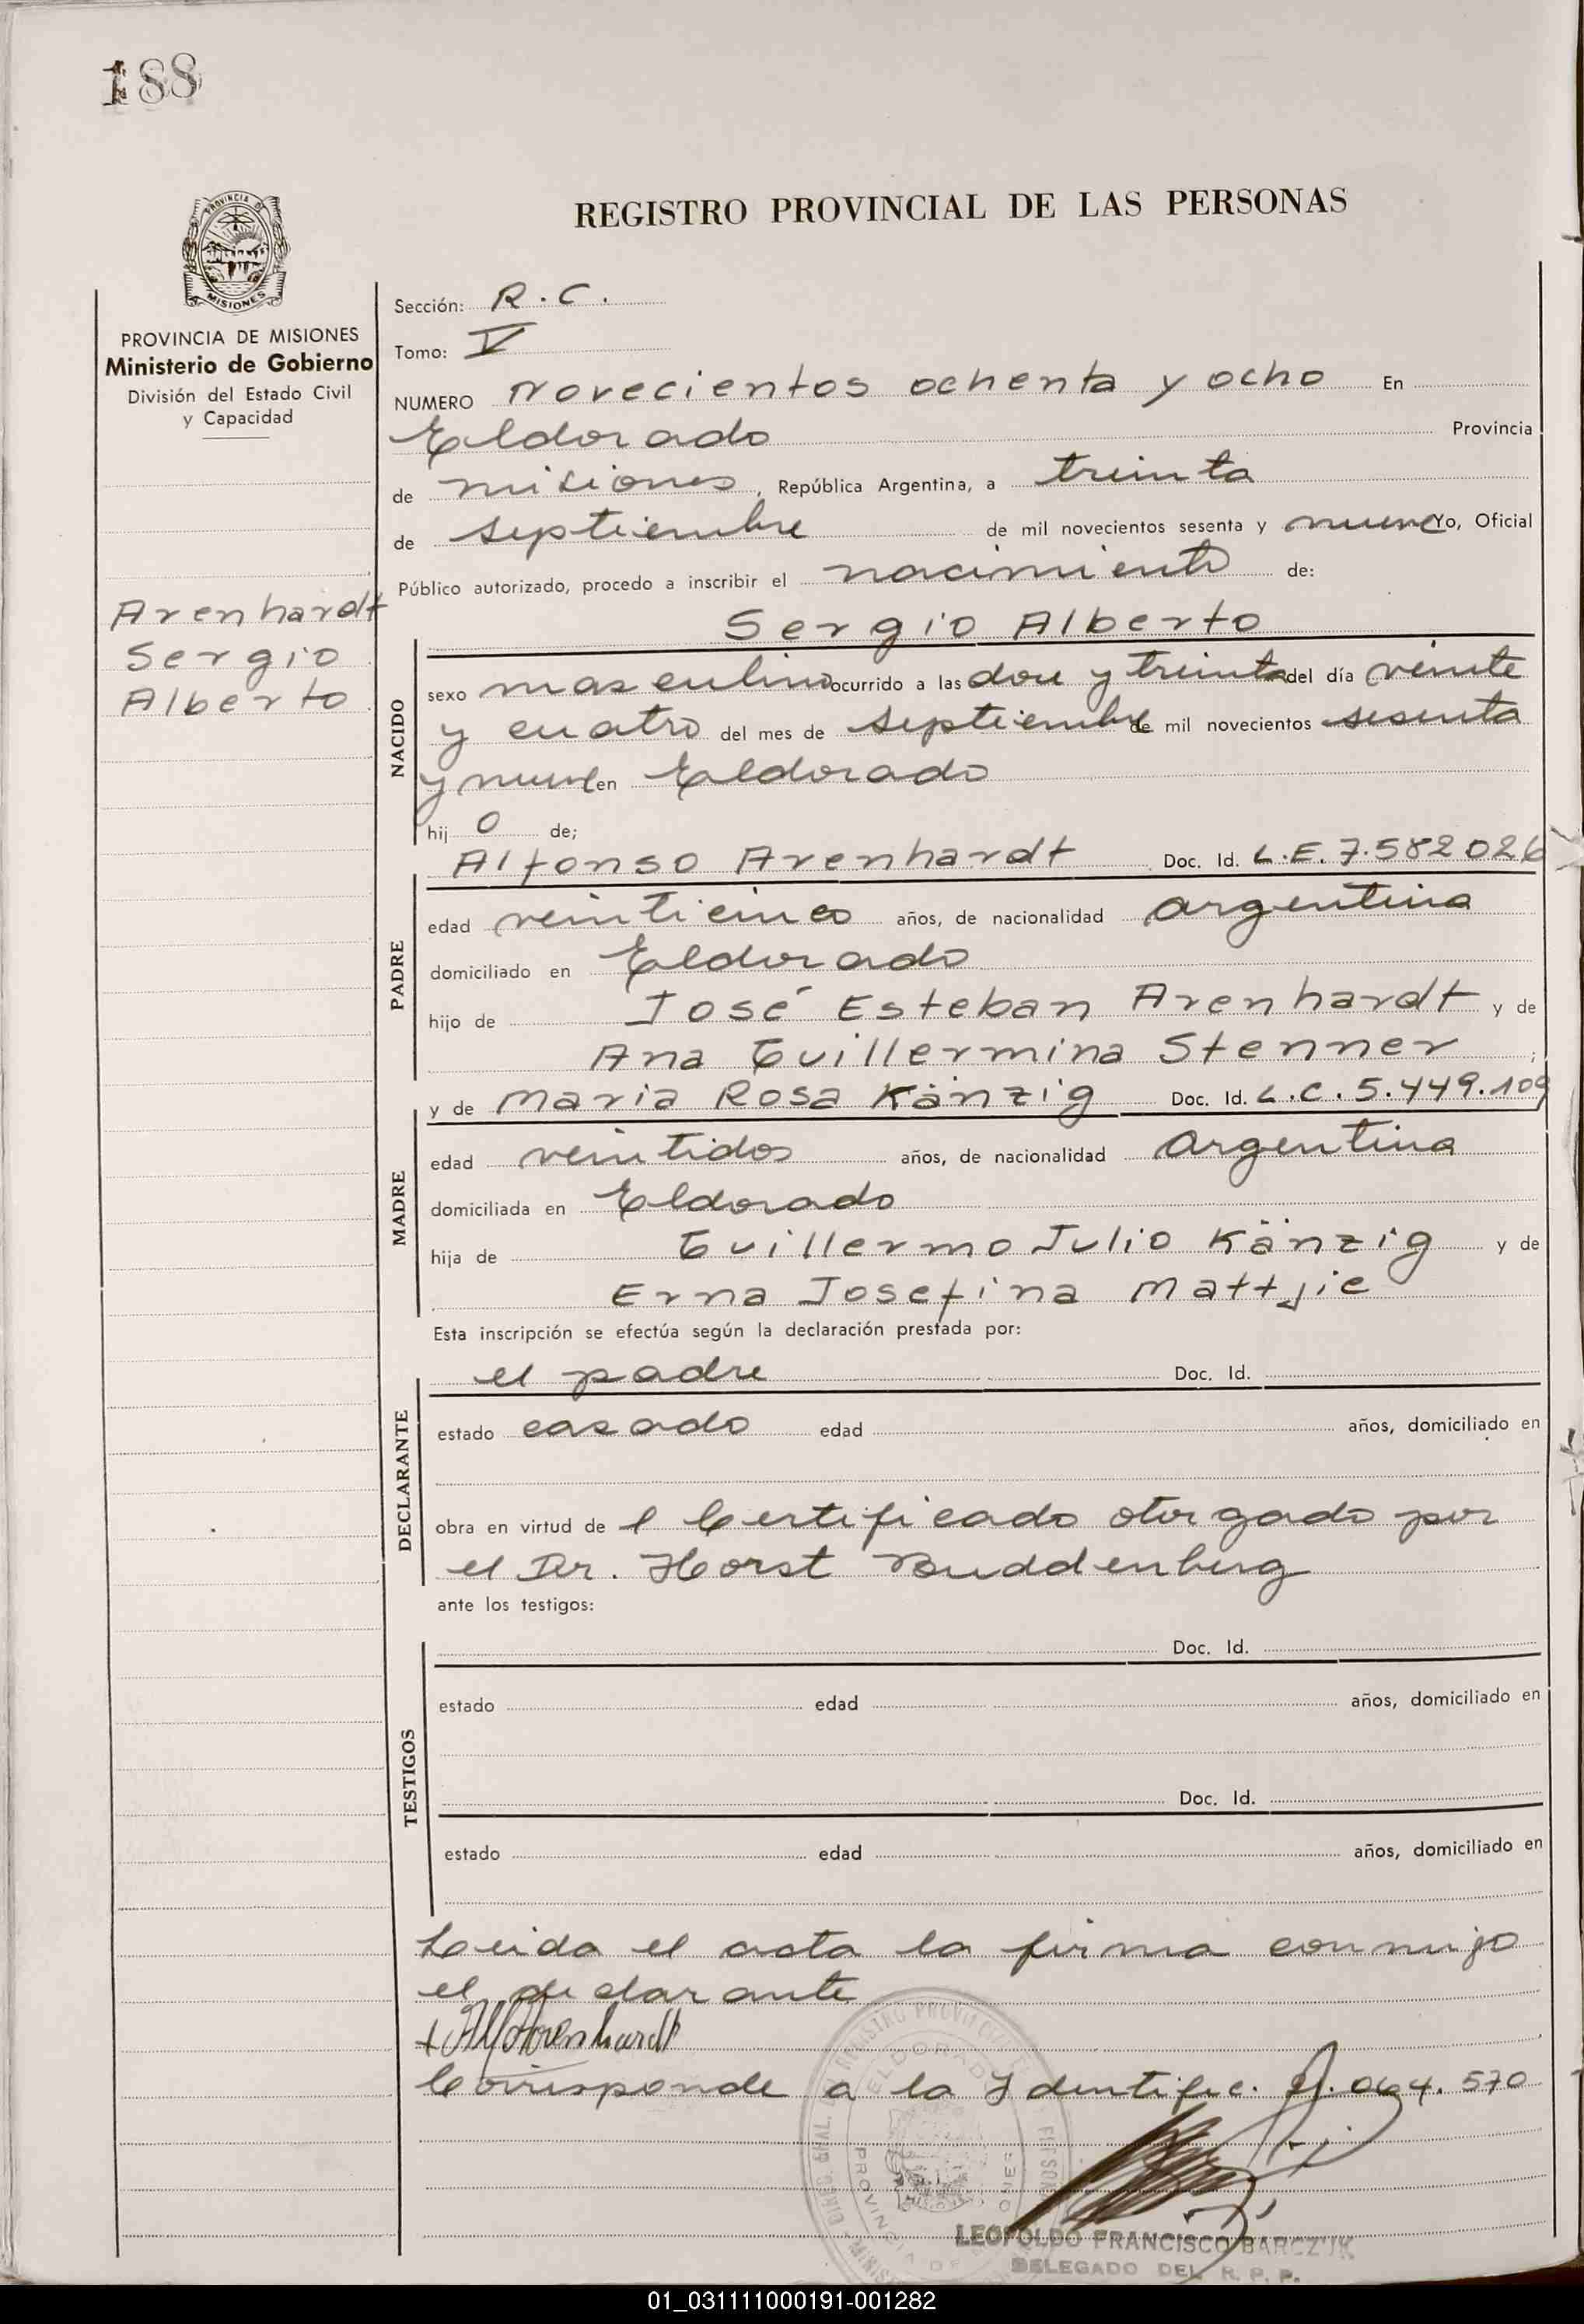 188
REGISTRO PROVINCIAL DE LAS PERSONAS
PROVINCIA DE MISIONES
Ministerio de Gobierno
División del Estado Civil
y Capacidad
Arenhardt
Sergio
Alberto
Sección: R.C.
Tomo: V
NUMERO Novecientos ochenta y ocho En
Eldorado Provincia
de misiones, República Argentina, a treinta
de septiembre de mil novecientos sesenta y nueve Yo, Oficial
Público autorizado, procedo a inscribir el nacimiento de:
Sergio Alberto
NACIDO
sexo masculino ocurrido a las doce y treinta del día veinte
y cuatro del mes de septiembre de mil novecientos sesenta
y nueve en Eldorado
hij o de;
Alfonso Arenhardt Doc. Id. L.E. 7.582026
PADRE
edad veinticinco años, de nacionalidad argentina
domiciliado en Eldorado
hijo de José Esteban Arenhardt y de
Ana Guillermina Stenner ;
y de Maria Rosa Känzig Doc. Id. L.C. 5.449.109
MADRE
edad veintidos años, de nacionalidad argentina
domiciliada en Eldorado
hija de Guillermo Julio Känzig y de
Erna Josefina Mattjie
Esta inscripción se efectúa según la declaración prestada por:
el padre Doc. Id.
DECLARANTE
estado casado edad años, domiciliado en
obra en virtud de l Certificado otorgado por
el Dr. Horst Buddenberg
ante los testigos:
Doc. Id.
TESTIGOS
estado edad años, domiciliado en
Doc. Id.
estado edad años, domiciliado en
Leida el acta la firma conmigo
el declarante
Arenhardt
Corresponde a la Identific. 064.570
ELDORADO
LEOPOLDO FRANCISCO BARCZUK
DELEGADO DEL R. P. P.
01_031111000191-001282